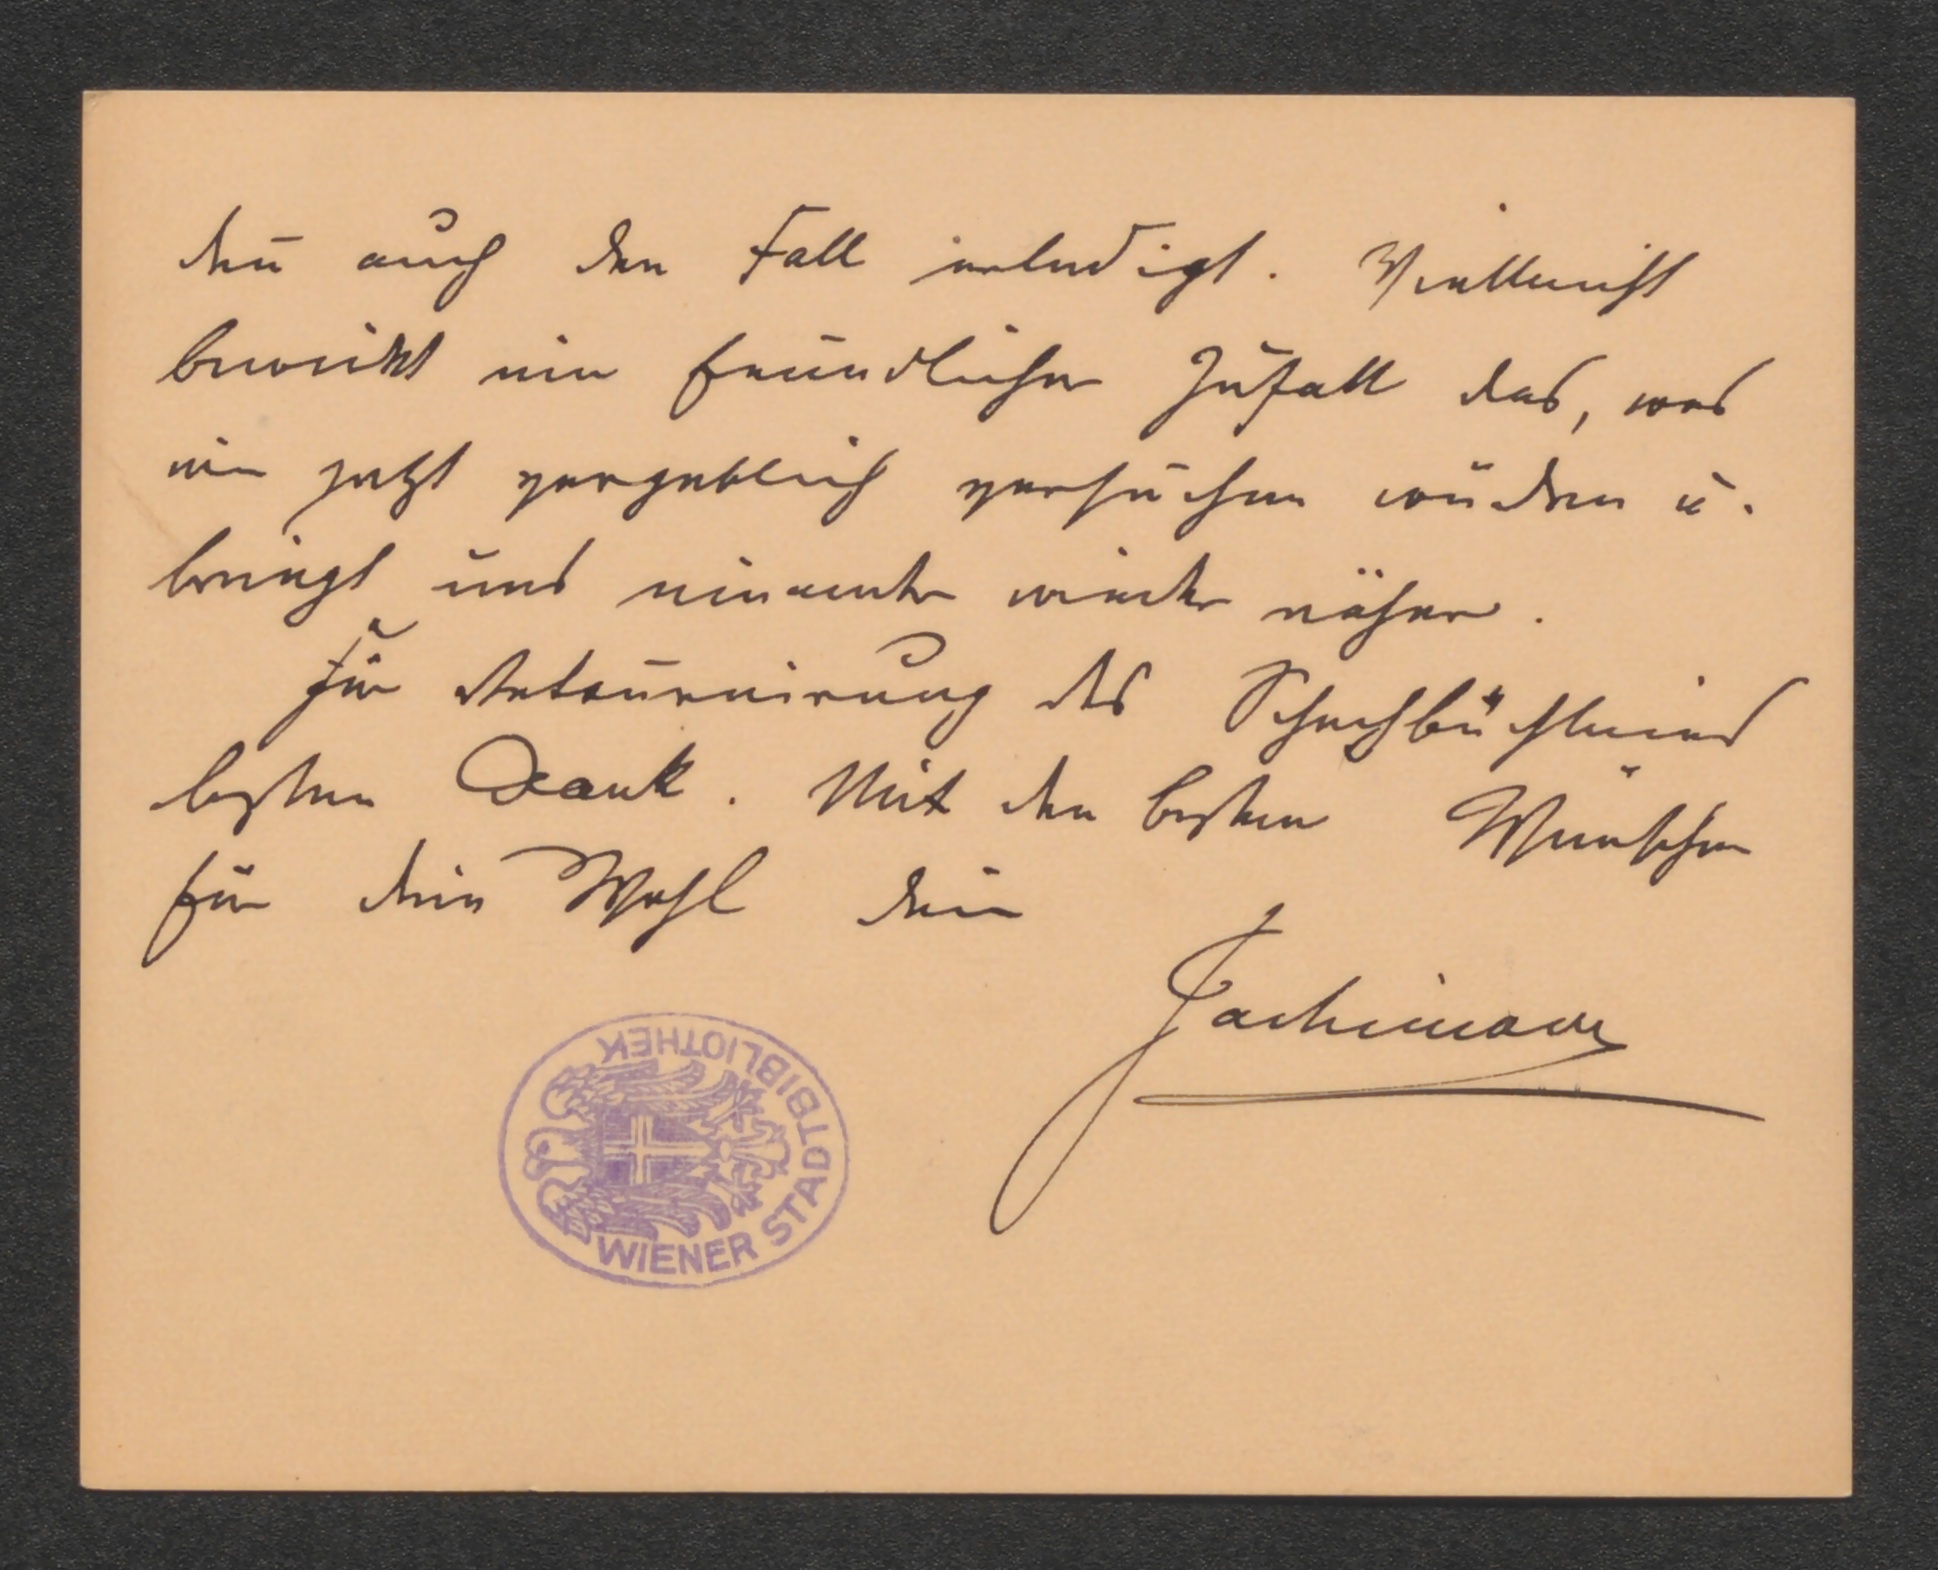 den̄ auch den Fall erledigt. Vielleicht
bewirkt ein freundlicher Zufall das, was
wir jetzt vergeblich versuchen würden u.
bringt uns einander wieder näher.
Für Retournirung des Schachbüchleins
besten Dank. Mit den besten Wünschen
für dein Wohl dein
WIENER STADTBIBLIOTHEK